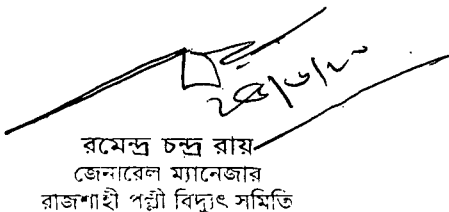 রমেন্দ্র চন্দ্র রায়
জেনারেল ম্যানেজার
রাজশাহী পল্লী বিদ্যুৎ সমিতি